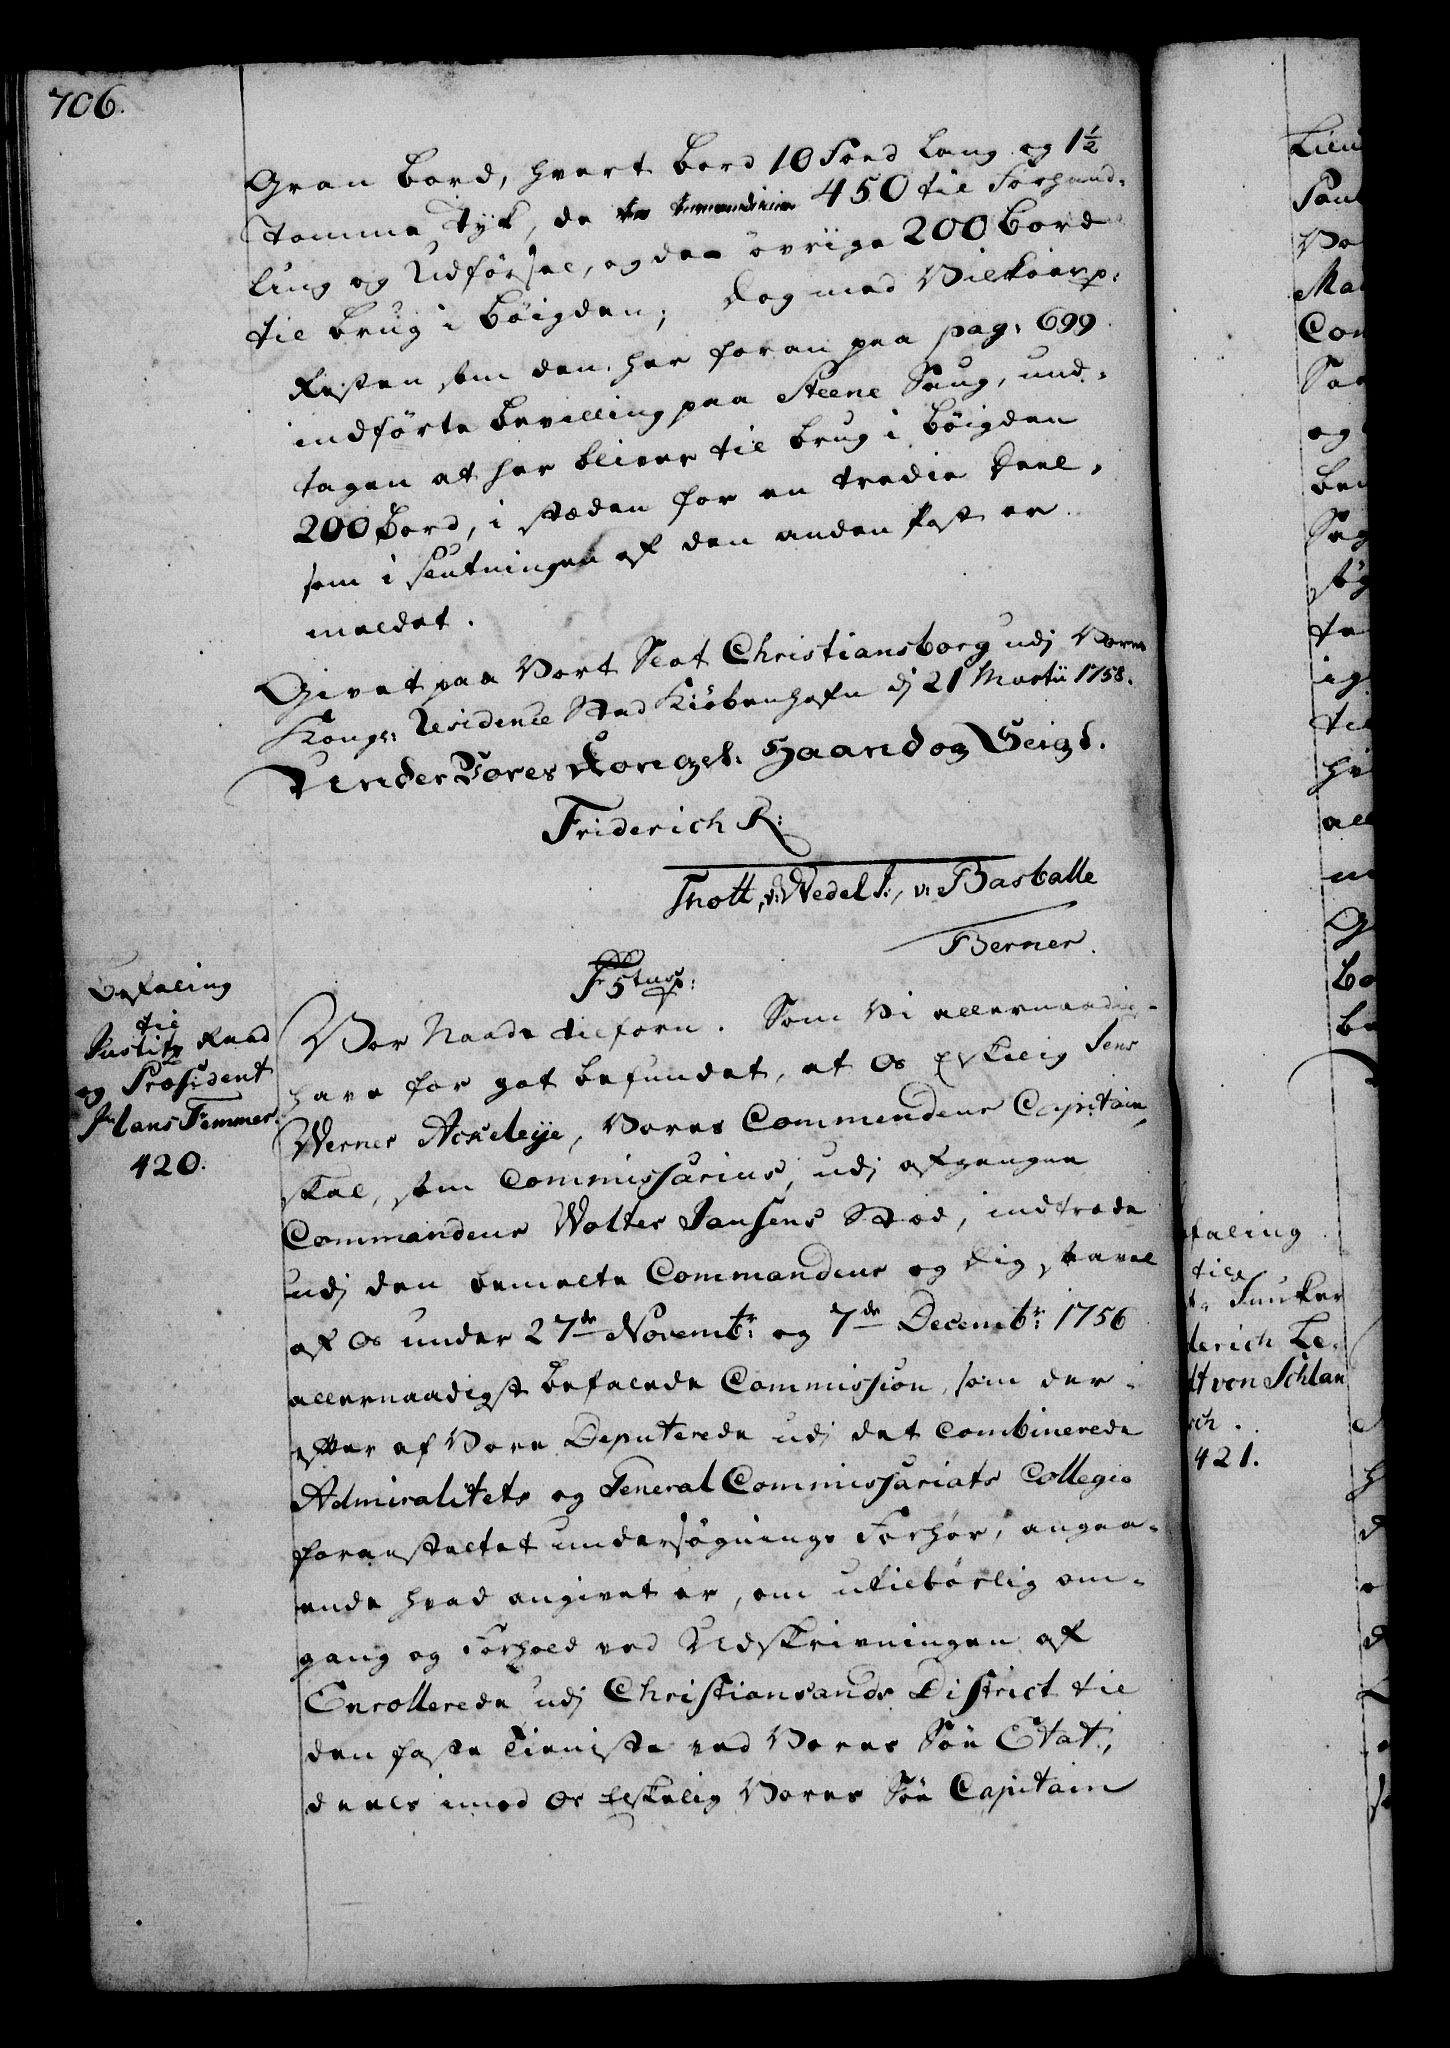 706.
Gran bord, hvert bord 10 Food lang og 1½
Tomme Tyk, de 450 til Forhand-
ling og Udførsel, og de øvrige 200 bord
til brug i bøigden; dog med Vilkoar p:
Resten som den her foran paa pag: 699
indførte bevilling paa Steene Saug, und-
tagen at her bliver til brug i bøigden
200 bord, i stæden for en tredie Deel,
som i slutningen af den anden Post er
meldet.
Givet paa Vort Slot Christiansborg udj Vores
Kongl: Residence Stad Kiøbenhafn dj 21 Martii 1758.
Under Vores Kongel: Haand og Seigl.
Friderich R:
Thott, v: Wedel F:, v: Barballe
Berner.
Befaling
til
Justitz Raad
og Præsident
Hans Femmer.
420.
F 5tus:
Vor Naade tilforn. Som Vi allernaadig-
have for got befundet, at Os Elskelig Jens
Werner Ackeleye, Vores Commandeur Capitain,
skal, som Commissarius, udj afgangne
Commandeur Wolter Jansens Stæd, indtræde
udj den bemelte Commandeur og dig, saavel
af Os under 27de Novembr: og 7de Decembr: 1756
allernaadigst befalede Commission, som der-
efter af Vore Deputerede udj det combinerede
Admiralitets og General Commissariats Collegio
foranstaltet undersøgnings Forhør, angaa-
ende hvad angivet er, om utilbørlig om-
gang og Forhold ved Udskrivningen af
Enrollerede udj Christiansands District til
den faste Tieniste ved Vores Søe Etat,
deels imod Os Elskelig Vores Søe Capitain
faling
til
Junker
derich Le-
tt von Schlan
sch.
421.